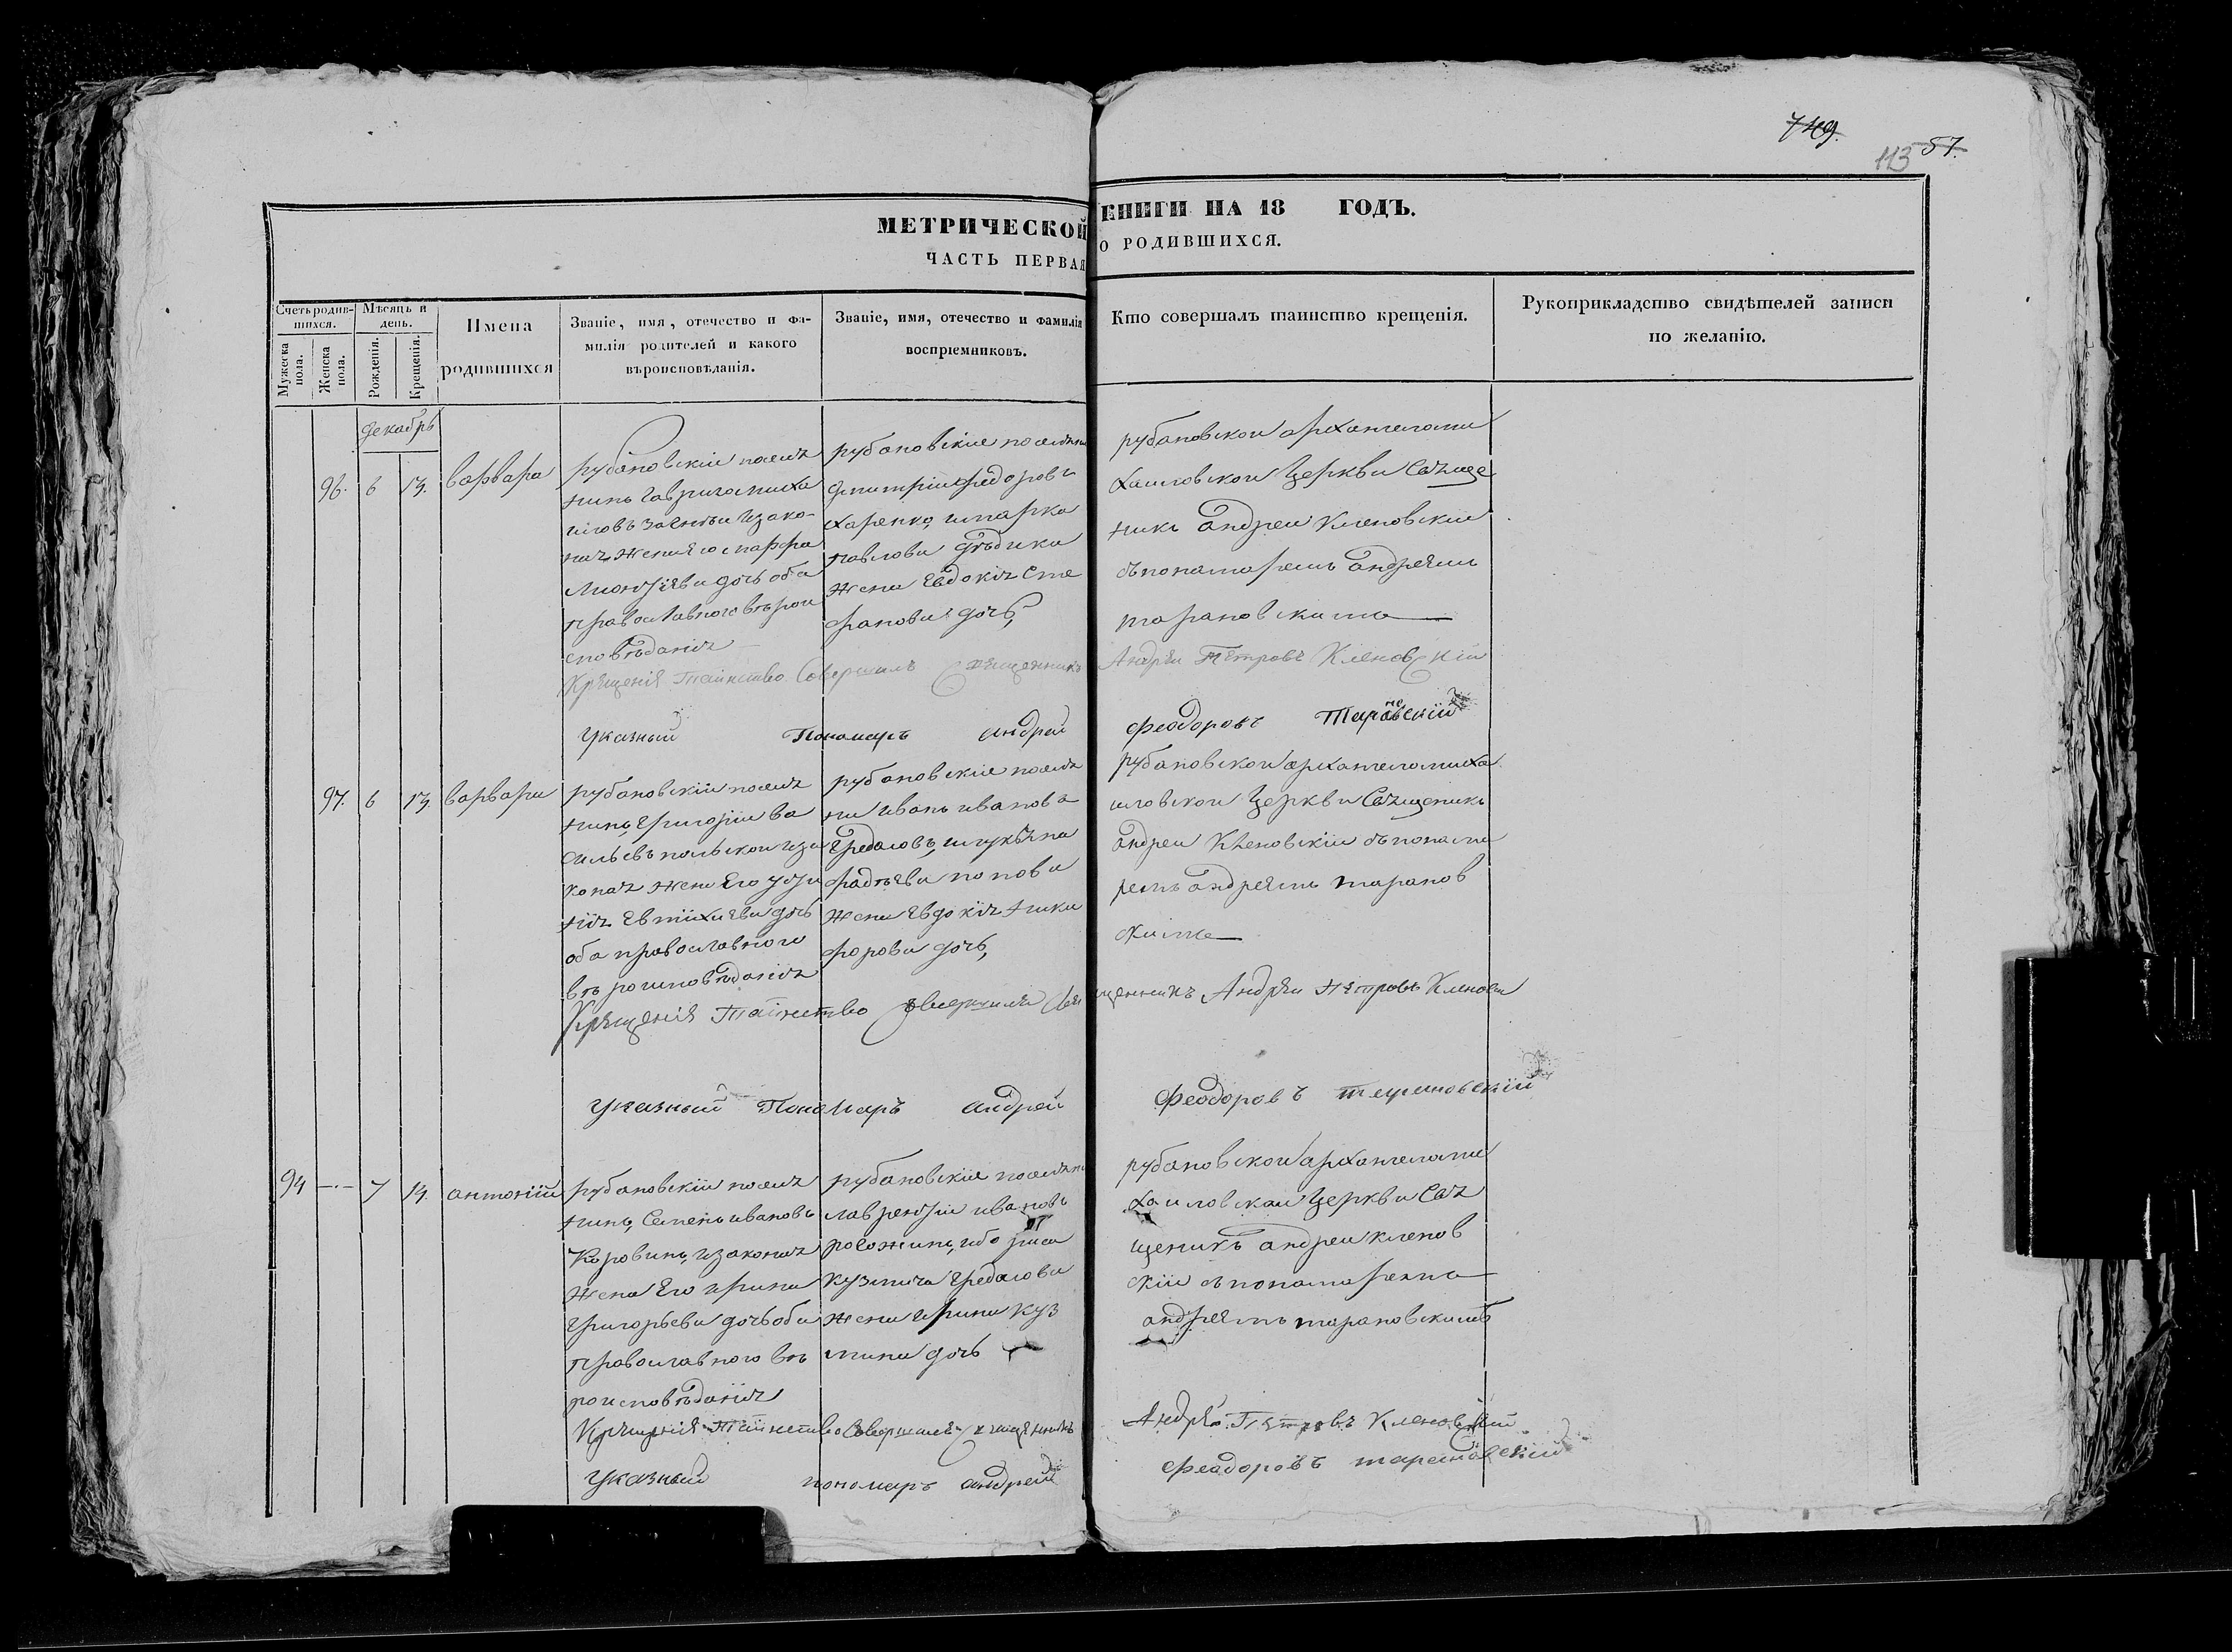 749.
113 57.
МЕТРИЧЕСКОЙ КНИГИ НА 18 ГОДЪ.
ЧАСТЬ ПЕРВАЯ О РОДИВШИХСЯ.
Счетъ родив-
шихся.
Мужеска пола.
Женска пола.
Мѣсяцъ и день.
Рожденія.
Крещенія.
Имена
родившихся
Званіе, имя, отечество и фа-
милія родителей и какого
вѣроисповѣданія.
Званіе, имя, отечество и фамилія
воспріемниковъ.
Кто совершалъ таинство крещенія.
Рукоприкладство свидѣтелей записи
по желанію.
декабрь
96. 6 13. варвара
рубановскіи посиля
нинъ гаврило миха
иловъ изако-
ная жена Его марфа
дочь оба
православного вѣрои
сповѣданія
рубановскіе поселяни
дмитріи федоровъ
харенко, имарка
павлова дядика
жена Евдокія Сте
фанова дочь,
рубановскои архангеломи
хаиловскои Церкви Свяще
никъ андреи Кленовскіи
съпонамаремъ андреямъ
тарановскимъ
Крещенія Таинство Совершилъ Священникъ Андреи Петровъ Кленовскіи
Указный Пономарь андрей Феодоровъ Тарановскій
97. 6 13. варвара
рубановскіи поселя
нинъ, григоріи ва
сильевъ польскои иза
коная жена Его усти
нія Евтихиева дочь
оба православного
вѣроисповѣданія
рубановскіе поселя
ни иванъ ивановъ
Чредаловъ, илукіяна
фадѣева попова
жена Евдокія ники
форова дочь,
рубановскои архангеломиха
иловскои Церкви Священикъ
андреи Кленовскіи съпонама
ремъ андреямъ таранов
скимъ
Крещенія Таинство Совершилъ Священникъ Андреи Петровъ Кленовск
указный Пономарь андрей Феодоровъ тарановскій
94 —·— 7 14. антоніи
рубановскіи поселя
нинъ, Семенъ ивановъ
Коровинъ, изаконая
жена Его ирина
григорьева дочь оба
православного вѣ
роисповѣданія
рубановскіе поселяни
лаврентіи ивановъ
рогожинъ, ибориса
кузмича Чредалова
жена ирина куз
мина дочь
рубановскои архангеломи
хаиловскои Церкви Свя
щеникъ андреи кленов
скіи съпонамаремъ
андреямъ тарановскимъ
Крещенія Таинство Совершилъ Священникъ Андрей Петровъ Кленовскій
Указный пономарь андрей Феодоровъ тарановскій